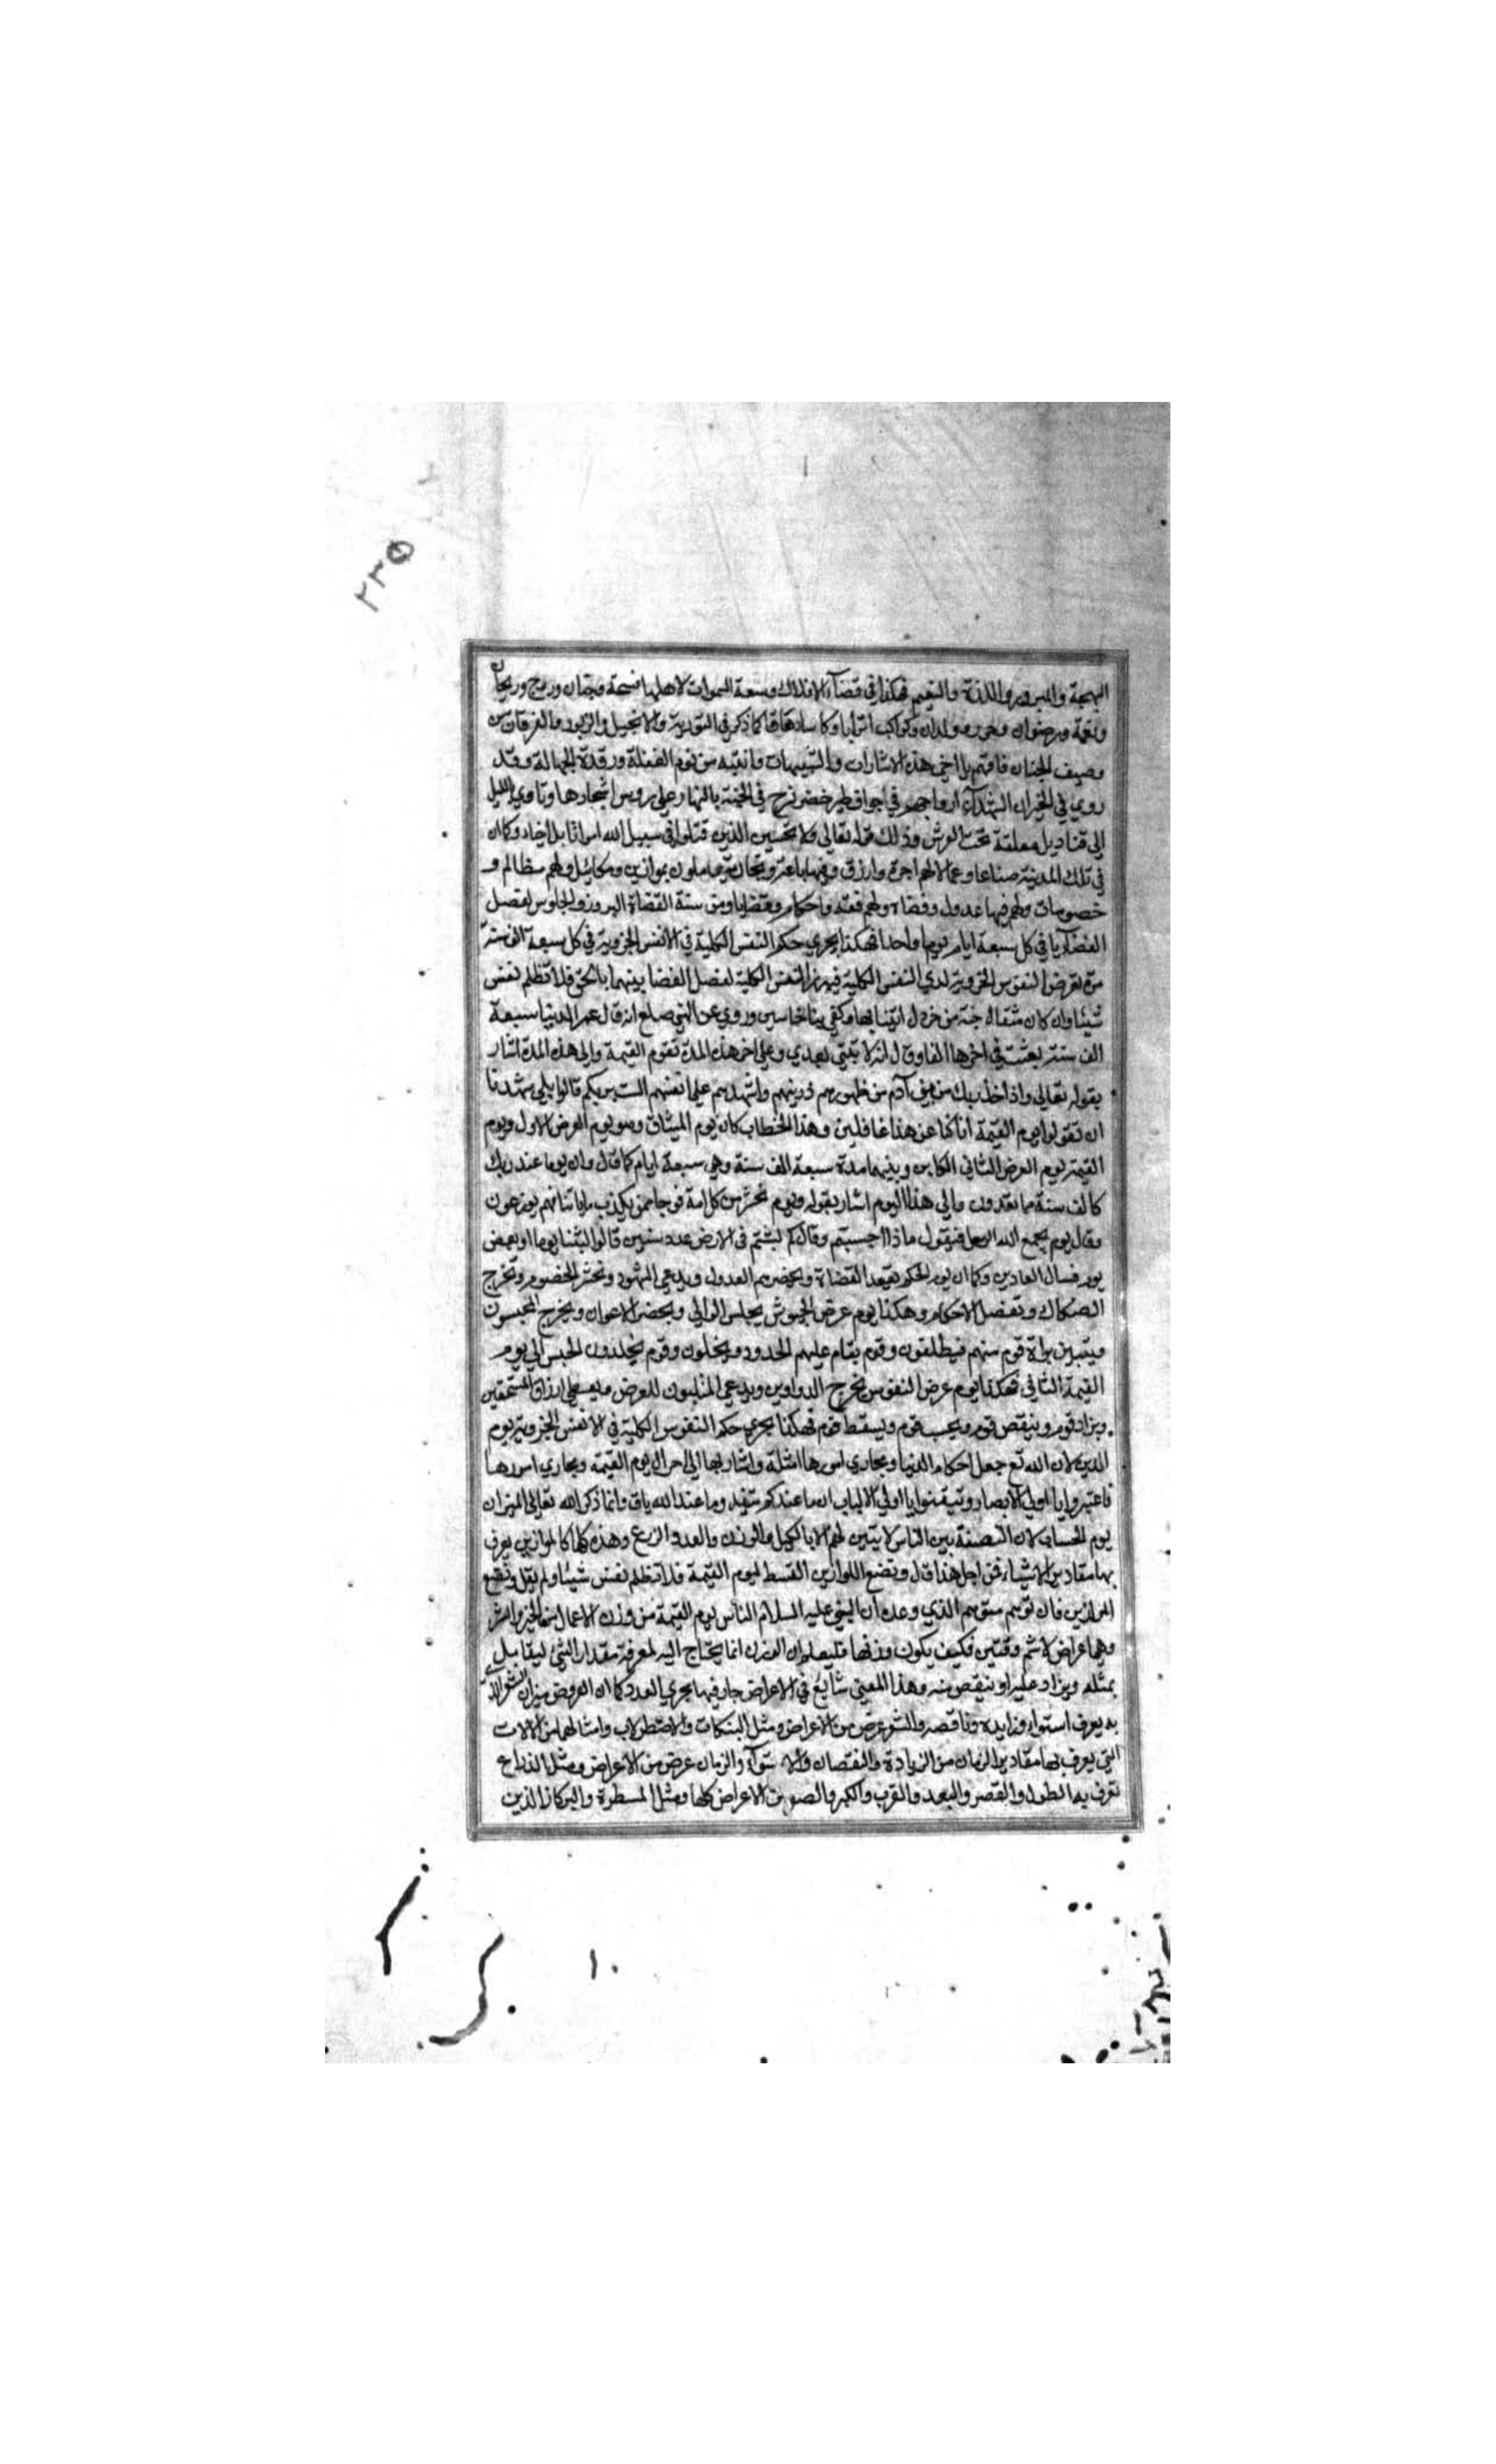 ٢٢٥
البهجة والسرور واللذة والنعيم فهكذا في فضاء الافلاك وسعة السموات لاهلها فسحة وجنان وروح وريحان
ونعمة ورضوان وحور وولدان وكواكب اترابا وكاسا دهاقا كما ذكر في التورية والانجيل والزبور والفرقان من
وصف الجنان فافهم يا اخي هذه الاشارات والتنبيهات وانتبه من نوم الغفلة ورقدة الجهالة وقد
روي في الخبر ان الشهداء ارواحهم في اجواف طير خضر تسرح في الجنة بالنهار على روس اشجارها وتاوي بالليل
الى قناديل معلقة تحت العرش وذلك قوله تعالى ولا تحسبن الذين قتلوا في سبيل الله امواتا بل احياء وكما ان
في تلك المدينة صناعا وعمالا لهم اجرة وارزاق وفيها باعة وتجار يتعاملون بموازين ومكائيل ولهم مظالم و
خصومات ولهم فيها عدول وقضاة ولهم فقه واحكام وقضايا ومن سنة القضاة البروز والجلوس لفصل
القضايا في كل سبعة ايام يوما واحدا فهكذا يجري حكم النفس الكلية في الانفس الجزوية في كل سبعة الف سنة
مرة تعرض النفوس الجزوية لدي النفس الكلية فيبرز النفس الكلية لفصل القضا بينهما بالحق فلا تظلم نفس
شيئا وان كان مثقال حبة من خردل اتينا بها وكفي بنا حاسبين وروي عن النبي صلعم انه قال عمر الدنيا سبعة
الف سنة بعثت في اخرها الفا وقال انه لا نبي بعدي وعلى اخر هذه المدة تقوم القيمة والى هذه المدة اشار
بقوله تعالى واذ اخذ ربك من بني آدم من ظهورهم ذريتهم واشهدهم على انفسهم الست بربكم قالوا بلى شهدنا
ان تقولوا يوم القيمة انا كنا عن هذا غافلين وهذا الخطاب كان يوم الميثاق وهو يوم العرض الاول ويوم
القيمة يوم العرض الثاني الكاين وبينهما مدة سبعة الف سنة وهي سبعة ايام كما قال وان يوما عند ربك
كالف سنة مما تعدون والى هذا اليوم اشار بقوله ويوم نحشر من كل امة فوجا ممن يكذب باياتنا فهم يوزعون
وقال يوم يجمع الله الرسل فيقول ماذا اجبتم وقال كم لبثتم في الارض عدد سنين قالوا لبثنا يوما او بعض
يوم فسال العادين وكما ان يوم الحكم يقعد القضاة ويحضرهم العدول ويدعي الشهود وتحشر الخصوم وتخرج
الصكاك وتفصل الاحكام وهكذا يوم عرض الجيوش يجلس الوالي ويحضر الاعوان ويخرج المحبسون
ويتبين براة قوم منهم فيطلقون وقوم يقام عليهم الحدود ويخلون وقوم يخلدون الحبس الى يوم
القيمة الثاني فهكذا يوم عرض النفوس يخرج الدواوين ويدعي المنلبون للعرض ويعطي ارزاق المستحقين
ويزاد قوم وينقص قوم ويحسب قوم ويسقط قوم فهكذا يجري حكم النفوس الكلية في الانفس الجزوية يوم
الدين لان الله تع جعل احكام الدنيا ومجاري امورها امثلة واشار بها الى احوال يوم القيمة ومجاري امورها
فاعتبروا يا اولي الابصار وتيقنوا يا اولي الالباب ان ما عندكم ينفد وما عند الله باق وانما ذكر الله تعالى الميزان
يوم الحساب لان النصفة بين الناس لا يتبين لهم الا بالكيل والوزن والعدد والزرع وهذه كلها كالموازين يعرف
بها مقادير الاشياء فمن اجل هذا قال ونضع الموازين القسط ليوم القيمة فلا تظلم نفس شيئا ولم يقل ونضع
الموازين فان توهم متوهم الذي وعده ان النبي عليه السلام الناس يوم القيمة من وزن الاعمال من الخير والشر
وهما عراض لا شم وقتين فكيف يكون وزنها فليعلم ان الوزن انما يحتاج اليه لمعرفة مقدار الشئ ليقابل
بمثله ويزاد عليه او ينقص منه وهذا المعنى شائع في الاعراض جار فيها مجري العدد كما ان العروض ميزان الشعر الذي
به يعرف استواه وزايده وناقصه والشعر عرض من الاعراض ومثل البنكات والاصطرلاب وامثالهما من الالات
التي يعرف بها مقادير الزمان من الزيادة والنقصان والاستواء والزمان عرض من الاعراض ومثل الذراع
تعرف به الطول والقصر والبعد والقرب والكبر والصغر من الاعراض كلها ومثل المسطرة والبركاز الذين